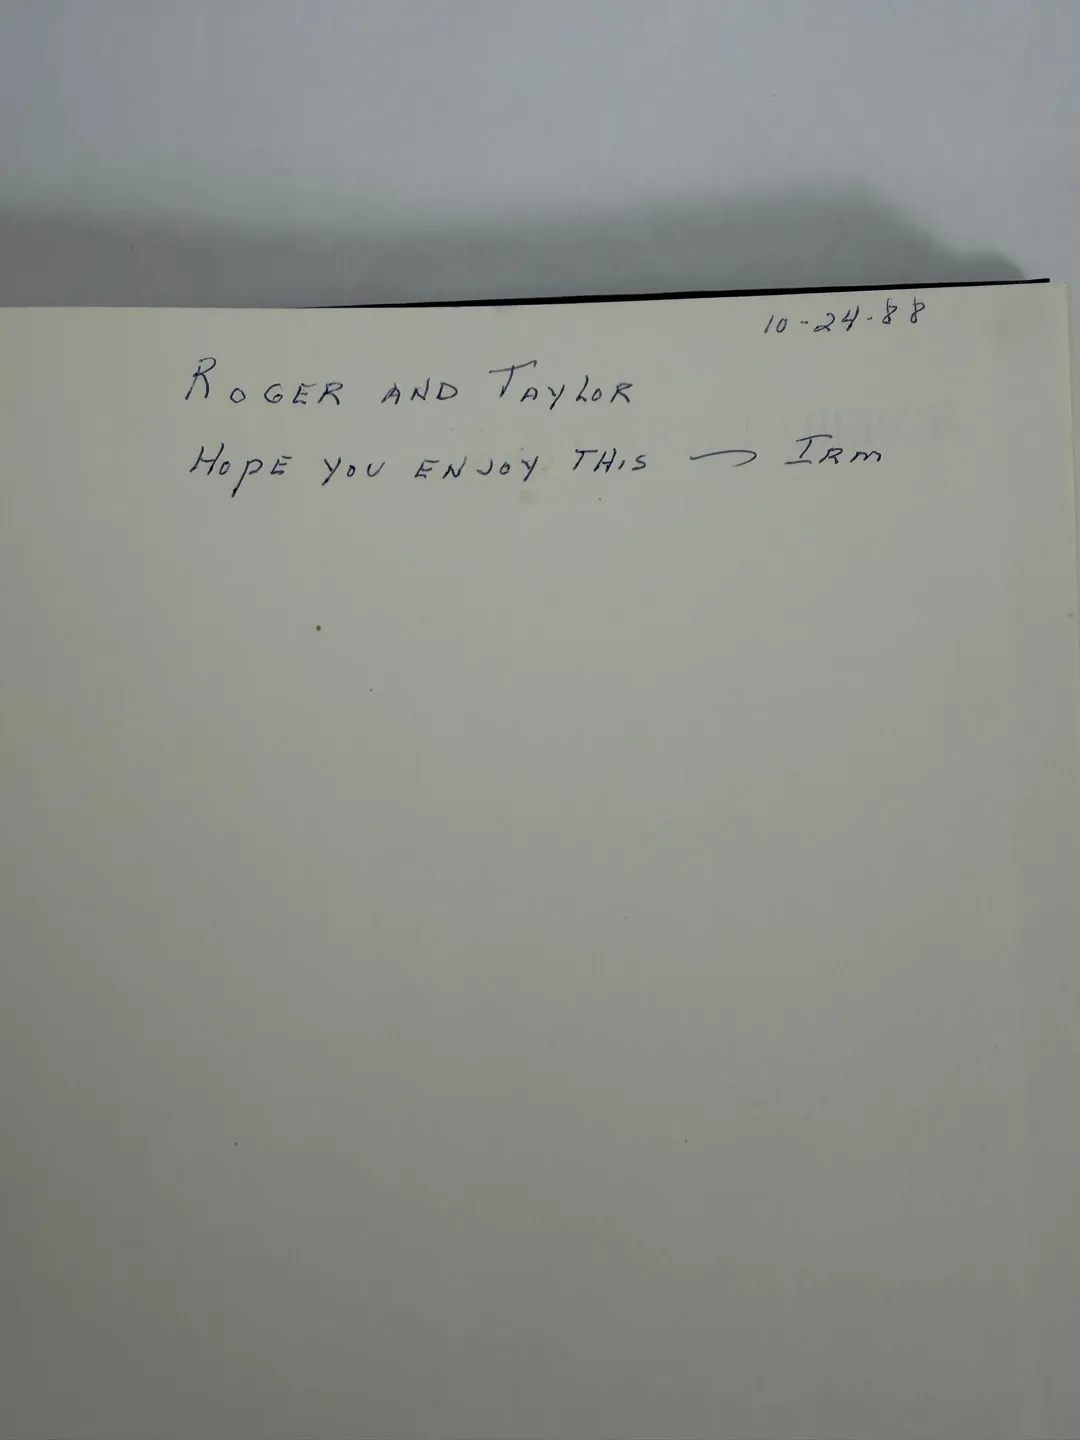 10-24-88
ROGER AND TAYLOR
HOPE YOU ENJOY THIS — IRM